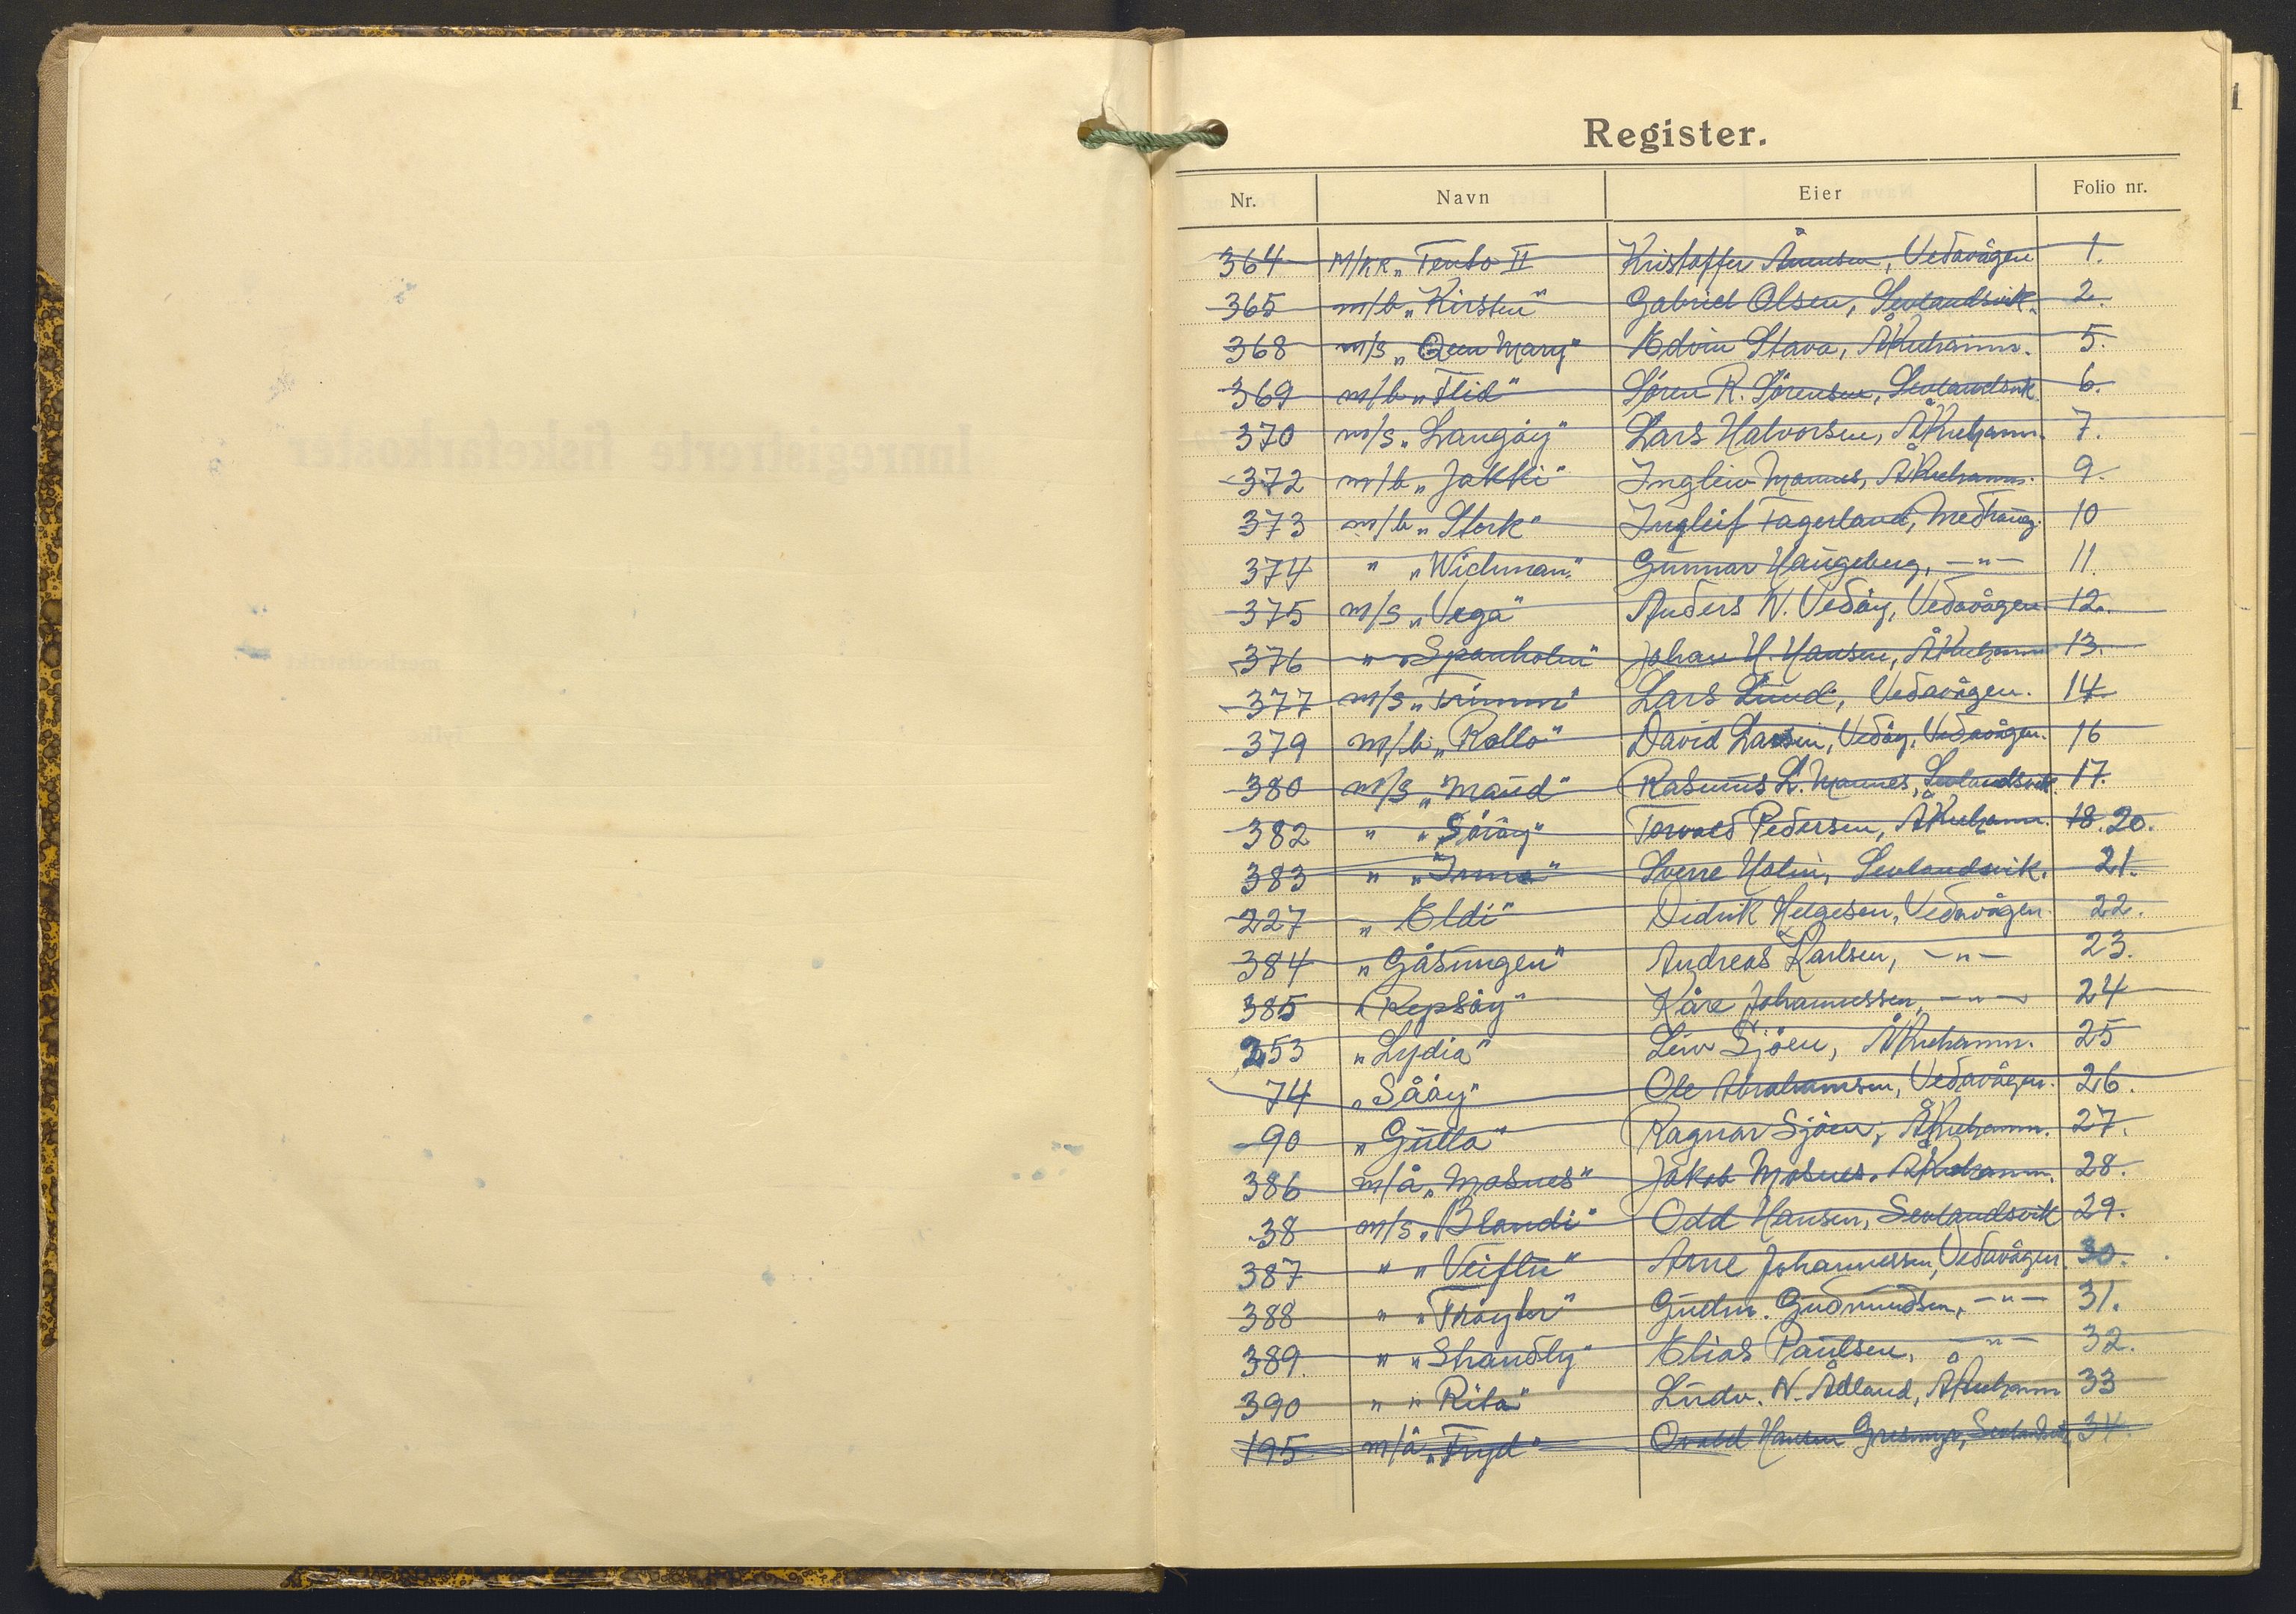 Register.
Nr. Navn Eier Folio nr.
364 M/kk „Tento II Kristoffer Ånensen, Vedavågen 1.
365 m/b „Kirsten" Gabriel Olsen, Sevlandsvik. 2.
368 m/s „Qeen Mary" Edvin Stava, Åkrehamn. 5.
369 m/b „Flid" Sören R. Sörensen, Sevlandsvik 6.
370 m/s „Langöy" Lars Halvorsen, Åkrehamn. 7.
372 m/b „Jakki" Ingleiv Mannes, Åkrehamn. 9.
373 m/b „Stork" Ingleif Fagerland, Medhaug. 10
374 " „Wichman" Gunnar Haugeberg, -"- 11.
375 m/s „Vega" Anders N. Vedöy, Vedavågen. 12.
376 " „Spanholm" Johan H. Hansen, Åkrehamn 13.
377 m/s „Trimm" Lars Lund, Vedavågen. 14
379 m/b „Rollo" David Larsen, Vedöy, Vedavågen. 16
380 m/s „Maud" Rasmus L. Mannes, Sevlandsvik. 17.
382 " „Söröy" Torvald Pedersen, Åkrehamn. 18. 20.
383 " „Inma" Sverre Holm, Sevlandsvik. 21.
227 „ Eldi" Didrik Helgesen, Vedavågen. 22.
384 „Gåsungen" Andreas Karlsen, -"- 23.
385 „Repsöy" Kåre Johannessen, -"- 24
253 „Lydia" Leiv Sjöen, Åkrehamn. 25
74 „Sååy" Ole Abrahamsen, Vedavågen. 26.
90 „Gulla" Ragnar Sjöen, Åkrehamn. 27.
386 m/å „Mosnes" Jakob Mosnes. Åkrehamn. 28.
38 m/s „Blandi" Odd Hansen, Sevlandsvik 29.
387 " „Veiflu" Arne Johannessen, Vedavågen. 30.
388 " „Tröyler" Gudm. Gudmundsen, -"- 31.
389. " „Strandly" Elias Paulsen, -"- 32.
390 " „Rita" Ludv. N. Ådland, Åkrehamn 33
195 m/å „Fryd" Osvald Hansen Sevlandsvik, 34.
1
Innregistrerte fiskefarkoster
merkedistrikt
fylke